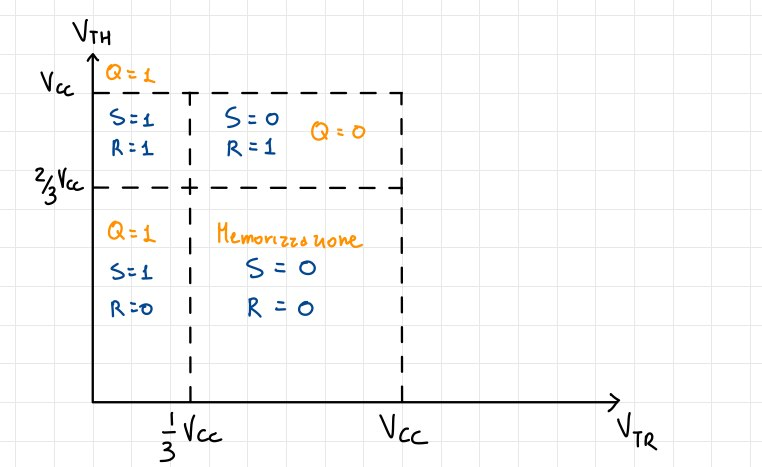 V_TH
V_CC
Q = 1
S = 1
R = 1
S = 0
R = 1
Q = 0
2/3 V_CC
Q = 1
S = 1
R = 0
Memorizzazione
S = 0
R = 0
1/3 V_CC
V_CC
V_TR